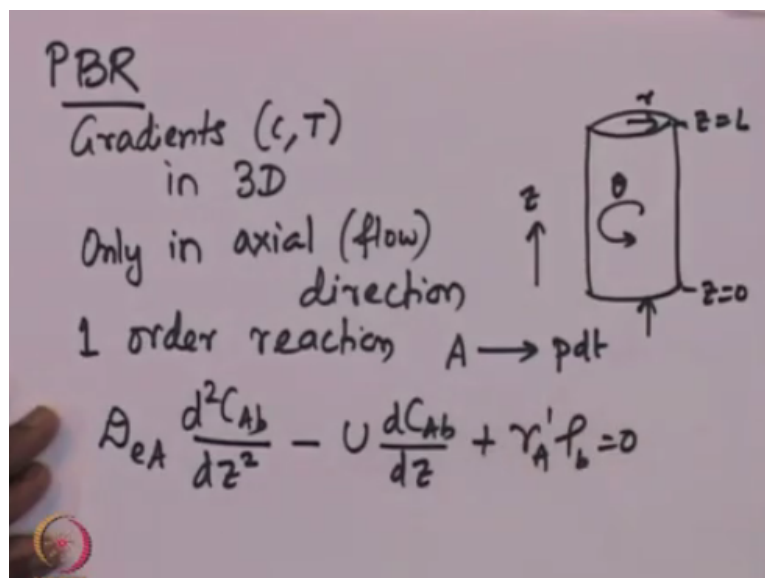 PBR
Gradients (C,T)
in 3D
Only in axial (flow)
direction
1 order reaction A → pdt
D_eA d²C_Ab/dz² − U dC_Ab/dz + r'_A ρ_b = 0
r
z=L
θ
z
z=0